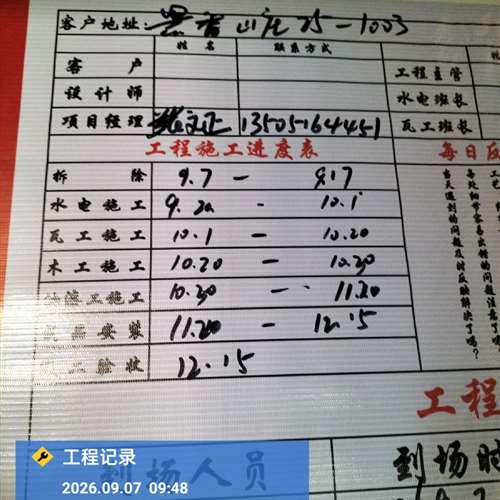 客户地址: 山庄 25-1003
姓名 联系方式
客户 工程主管
设计师 水电班长
项目经理 文正 13505164451 瓦工班长
工程施工进度表 每日反
拆除 9.7 - 9.17
水电施工 9.20 - 10.1
瓦工施工 10.1 - 10.20
木工施工 10.20 - 10.30
工施工 10.30 - 11.20
安装 11.20 - 12.15
验收 12.15
每处细节容易出错的问题注意了
当天遇到的问题及时反映解决了吗?
工程
到场人员 到场时
工程记录
2026.09.07 09:48